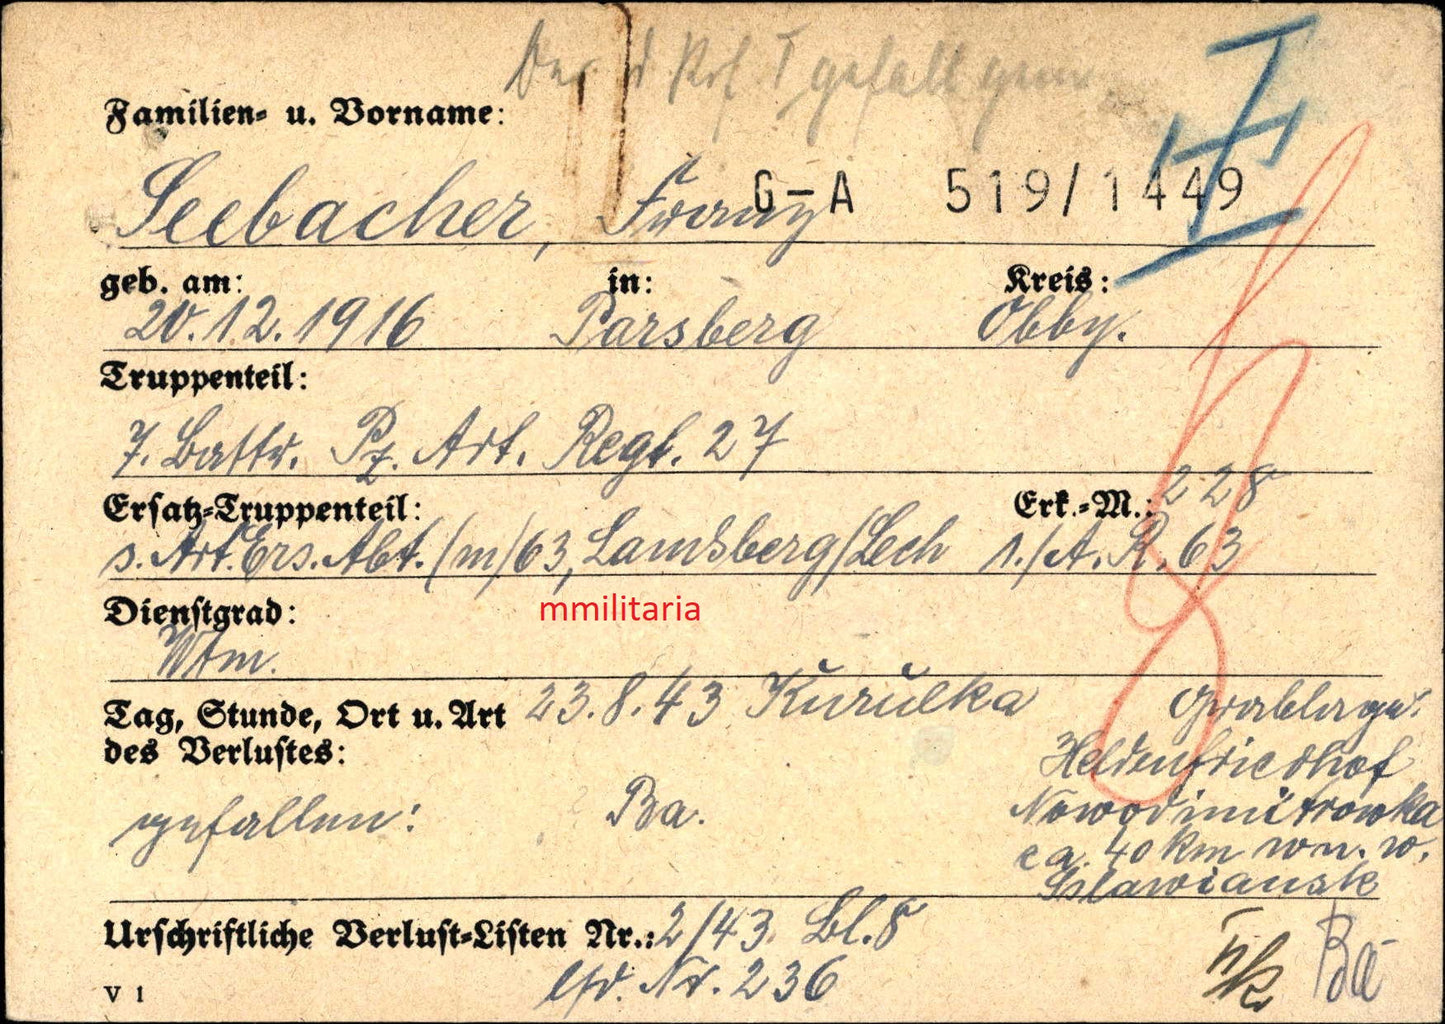 gefall
Familien- u. Vorname:
Seebacher, Franz G-A 519/1449
geb. am: in: Kreis:
20.12.1916 Parsberg Obby.
Truppenteil:
7. Battr. Pz. Art. Regt. 27
Ersatz-Truppenteil: Erk.-M.: 228
s. Art. Ers. Abt. (m) 63, Landsberg/Lech 1./A. R. 63
Dienstgrad:
mmilitaria
Wtm.
Tag, Stunde, Ort u. Art 23.8.43 Kurulka Grablage:
des Verlustes: Heldenfriedhof
gefallen: Ba. Nowodimitrowka
ca. 40 km w
Sslawiansk
Urschriftliche Verlust-Listen Nr.: 2/43 Bl. 8
lfd. Nr. 236
V 1